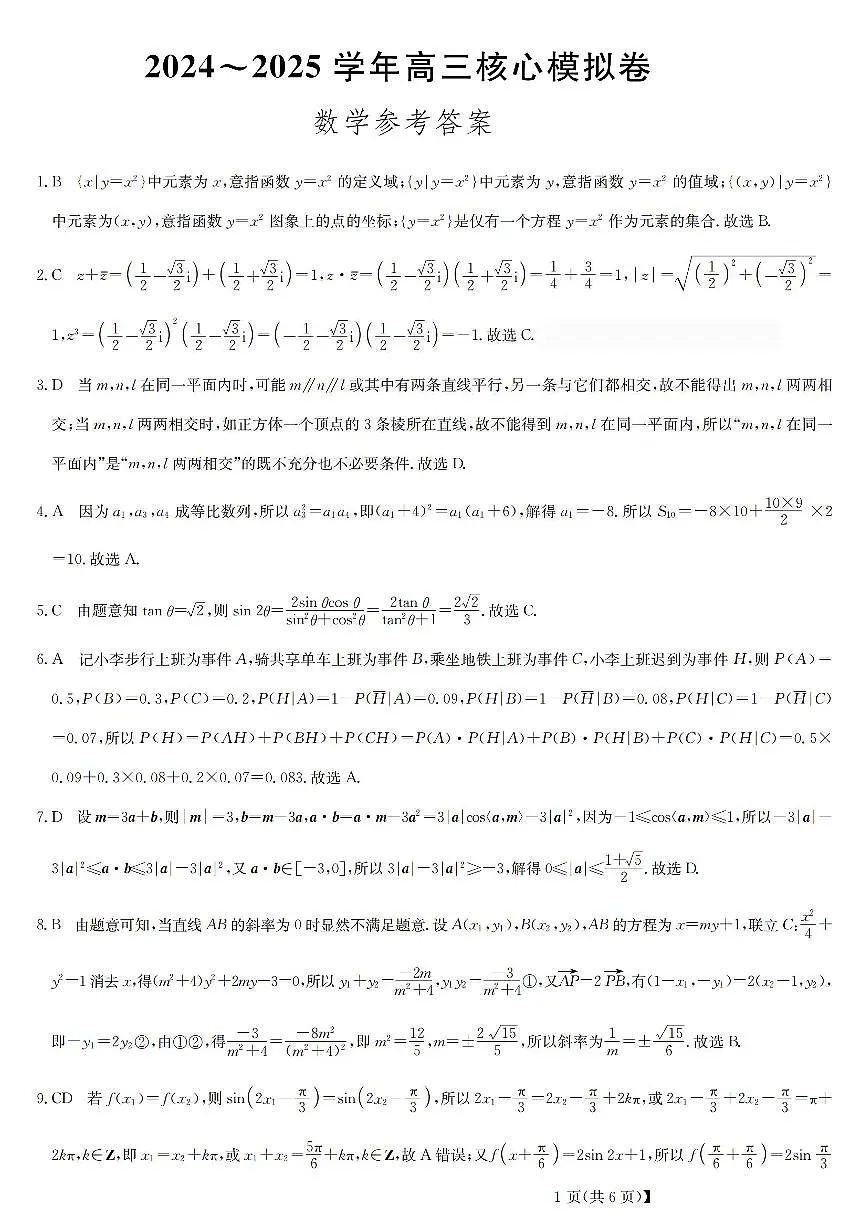 2024～2025 学年高三核心模拟卷
数学参考答案
1. B {x|y=x²}中元素为 x,意指函数 y=x² 的定义域;{y|y=x²}中元素为 y,意指函数 y=x² 的值域;{(x,y)|y=x²}
中元素为(x,y),意指函数 y=x² 图象上的点的坐标;{y=x²}是仅有一个方程 y=x² 作为元素的集合. 故选 B.
2. C z+z̄=(1/2-√3/2 i)+(1/2+√3/2 i)=1,z·z̄=(1/2-√3/2 i)(1/2+√3/2 i)=1/4+3/4=1,|z|=√((1/2)²+(-√3/2)²)=
1,z³=(1/2-√3/2 i)²(1/2-√3/2 i)=(-1/2-√3/2 i)(1/2-√3/2 i)=-1. 故选 C.
3. D 当 m,n,l 在同一平面内时,可能 m∥n∥l 或其中有两条直线平行,另一条与它们都相交,故不能得出 m,n,l 两两相
交;当 m,n,l 两两相交时,如正方体一个顶点的 3 条棱所在直线,故不能得到 m,n,l 在同一平面内,所以“m,n,l 在同一
平面内”是“m,n,l 两两相交”的既不充分也不必要条件. 故选 D.
4. A 因为 a₁,a₃,a₄ 成等比数列,所以 a₃²=a₁a₄,即(a₁+4)²=a₁(a₁+6),解得 a₁=-8. 所以 S₁₀=-8×10+10×9/2×2
=10. 故选 A.
5. C 由题意知 tan θ=√2,则 sin 2θ=2sin θcos θ/(sin²θ+cos²θ)=2tan θ/(tan²θ+1)=2√2/3. 故选 C.
6. A 记小李步行上班为事件 A,骑共享单车上班为事件 B,乘坐地铁上班为事件 C,小李上班迟到为事件 H,则 P(A)=
0.5,P(B)=0.3,P(C)=0.2,P(H|A)=1-P(H̄|A)=0.09,P(H|B)=1-P(H̄|B)=0.08,P(H|C)=1-P(H̄|C)
=0.07,所以 P(H)=P(AH)+P(BH)+P(CH)=P(A)·P(H|A)+P(B)·P(H|B)+P(C)·P(H|C)=0.5×
0.09+0.3×0.08+0.2×0.07=0.083. 故选 A.
7. D 设 m=3a+b,则|m|=3,b=m-3a,a·b=a·m-3a²=3|a|cos⟨a,m⟩-3|a|²,因为-1≤cos⟨a,m⟩≤1,所以-3|a|-
3|a|²≤a·b≤3|a|-3|a|²,又 a·b∈[-3,0],所以 3|a|-3|a|²≥-3,解得 0≤|a|≤(1+√5)/2. 故选 D.
8. B 由题意可知,当直线 AB 的斜率为 0 时显然不满足题意. 设 A(x₁,y₁),B(x₂,y₂),AB 的方程为 x=my+1,联立 C:x²/4+
y²=1 消去 x,得(m²+4)y²+2my-3=0,所以 y₁+y₂=-2m/(m²+4),y₁y₂=-3/(m²+4)①,又AP→=2PB→,有(1-x₁,-y₁)=2(x₂-1,y₂),
即-y₁=2y₂②,由①②,得-3/(m²+4)=-8m²/(m²+4)²,即 m²=12/5,m=±2√15/5,所以斜率为1/m=±√15/6. 故选 B.
9. CD 若 f(x₁)=f(x₂),则 sin(2x₁-π/3)=sin(2x₂-π/3),所以 2x₁-π/3=2x₂-π/3+2kπ,或 2x₁-π/3+2x₂-π/3=π+
2kπ,k∈Z,即 x₁=x₂+kπ,或 x₁+x₂=5π/6+kπ,k∈Z,故 A 错误;又f(x+π/6)=2sin 2x+1,所以 f(π/6+π/6)=2sin π/3
1 页(共 6 页)】